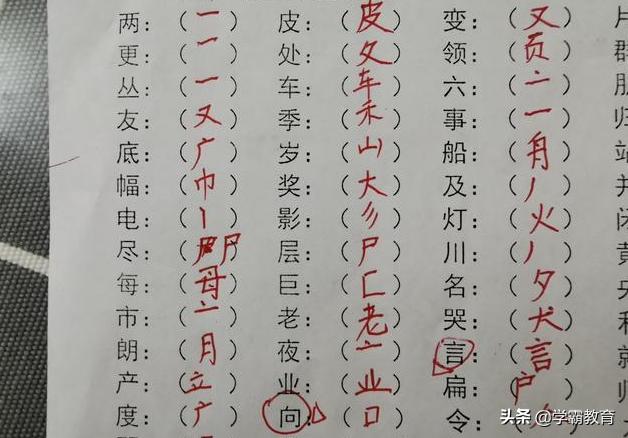 两：（一） 皮：（皮） 变：（又） 片
更：（一） 处：（夂） 领：（页） 群
丛：（一） 车：（车） 六：（亠）
友：（又） 季：（禾） 事：（一） 归
底：（广） 岁：（山） 船：（舟） 站
幅：（巾） 奖：（大） 及：（丿） 并
电：（丨） 影：（彡） 灯：（火） 闭
尽：（尸） 层：（尸） 川：（丿） 黄
每：（母） 巨：（匚） 名：（夕） 央
市：（亠） 老：（老） 哭：（犬） 和
朗：（月） 夜：（亠） 言：（言） 就
产：（立） 业：（业） 扁：（户） 师
度：（广） 向：（口） 令：
头条 @学霸教育